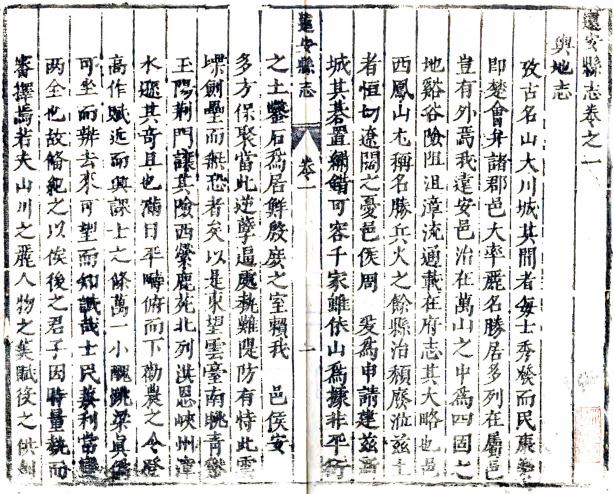 遠安縣志卷之一
輿地志
攷古名山大川城其間者每士秀發而民庚
即楚會弁諸郡邑大率麗名勝居多列在屬邑
豈有外焉我遠安邑治在萬山之中為四固之
地谿谷險阻沮漳流通載在府志其大略也
西鳳山尢稱名勝兵火之餘縣治頹廢茲
者恒切遼闊之憂邑侯周 爰為申請建茲
城其碁置繡錯可容千家雖依山為據非平
遠安縣志 卷一 一
之土鑿石為居鮮殷庶之室賴我 邑侯安
多方保聚當此逆孽逼處勢難隄防有恃此
堞劍壘而無恐者矣以是東望雲臺南眺青
玉陽荊門讓其險西縈鹿苑北列洪恩峽州
水遜其奇且也滿日平疇俯而下勸農之令登
高作賦近而興課士之條萬一小醜跳梁真
可坐而辦去來可望而知識哉士民兼利常變
兩全也故脩紀之以俟後之君子因時量勢而
審擇焉若夫山川之麗人物之美賦役之供